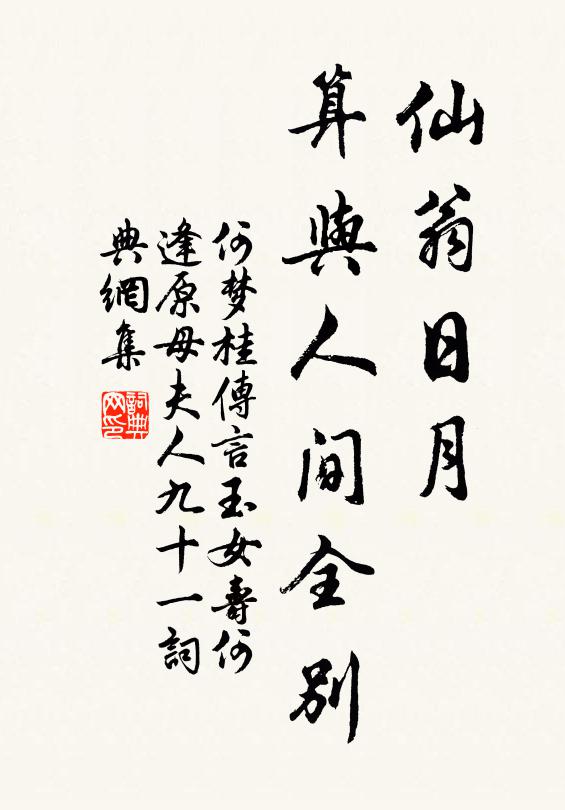 仙翁日月
算與人间全别
何梦桂傳言玉女壽何
逢原母夫人九十一詞
典網集
詞典
网印